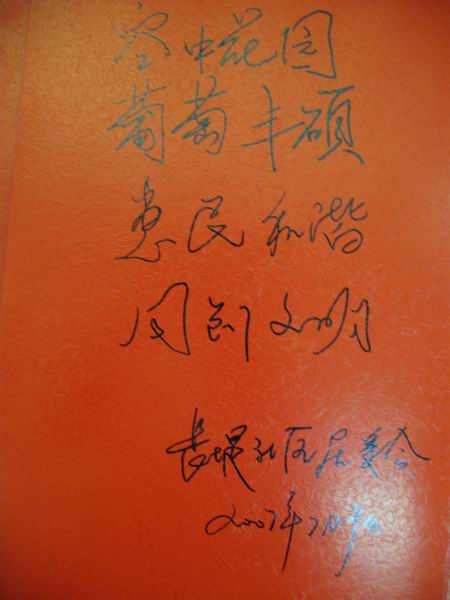 空中花园
葡萄丰硕
惠民和谐
同创文明
长堤社区居委会
2007年7月